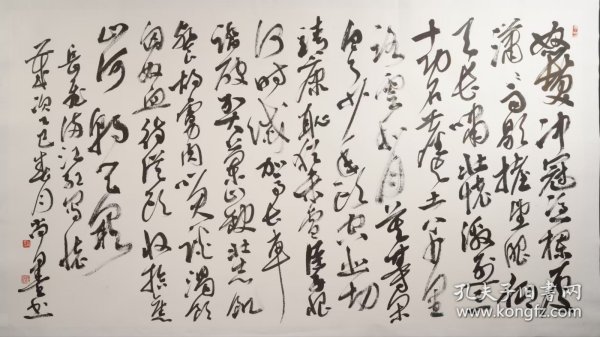 怒髮冲冠凭栏处
潇潇雨歇抬望眼仰
天长啸壮怀激烈三
十功名尘与土八千里
路云和月莫等闲
白了少年头空悲切
靖康耻犹未雪臣子恨
何时灭驾长车
踏破贺兰山缺壮志饥
餐胡虏肉笑谈渴饮
匈奴血待从头收拾旧
山河朝天阙
岳飞满江红写怀
岁次乙巳春月尚墨书
孔夫子旧书网
www.kongfz.com